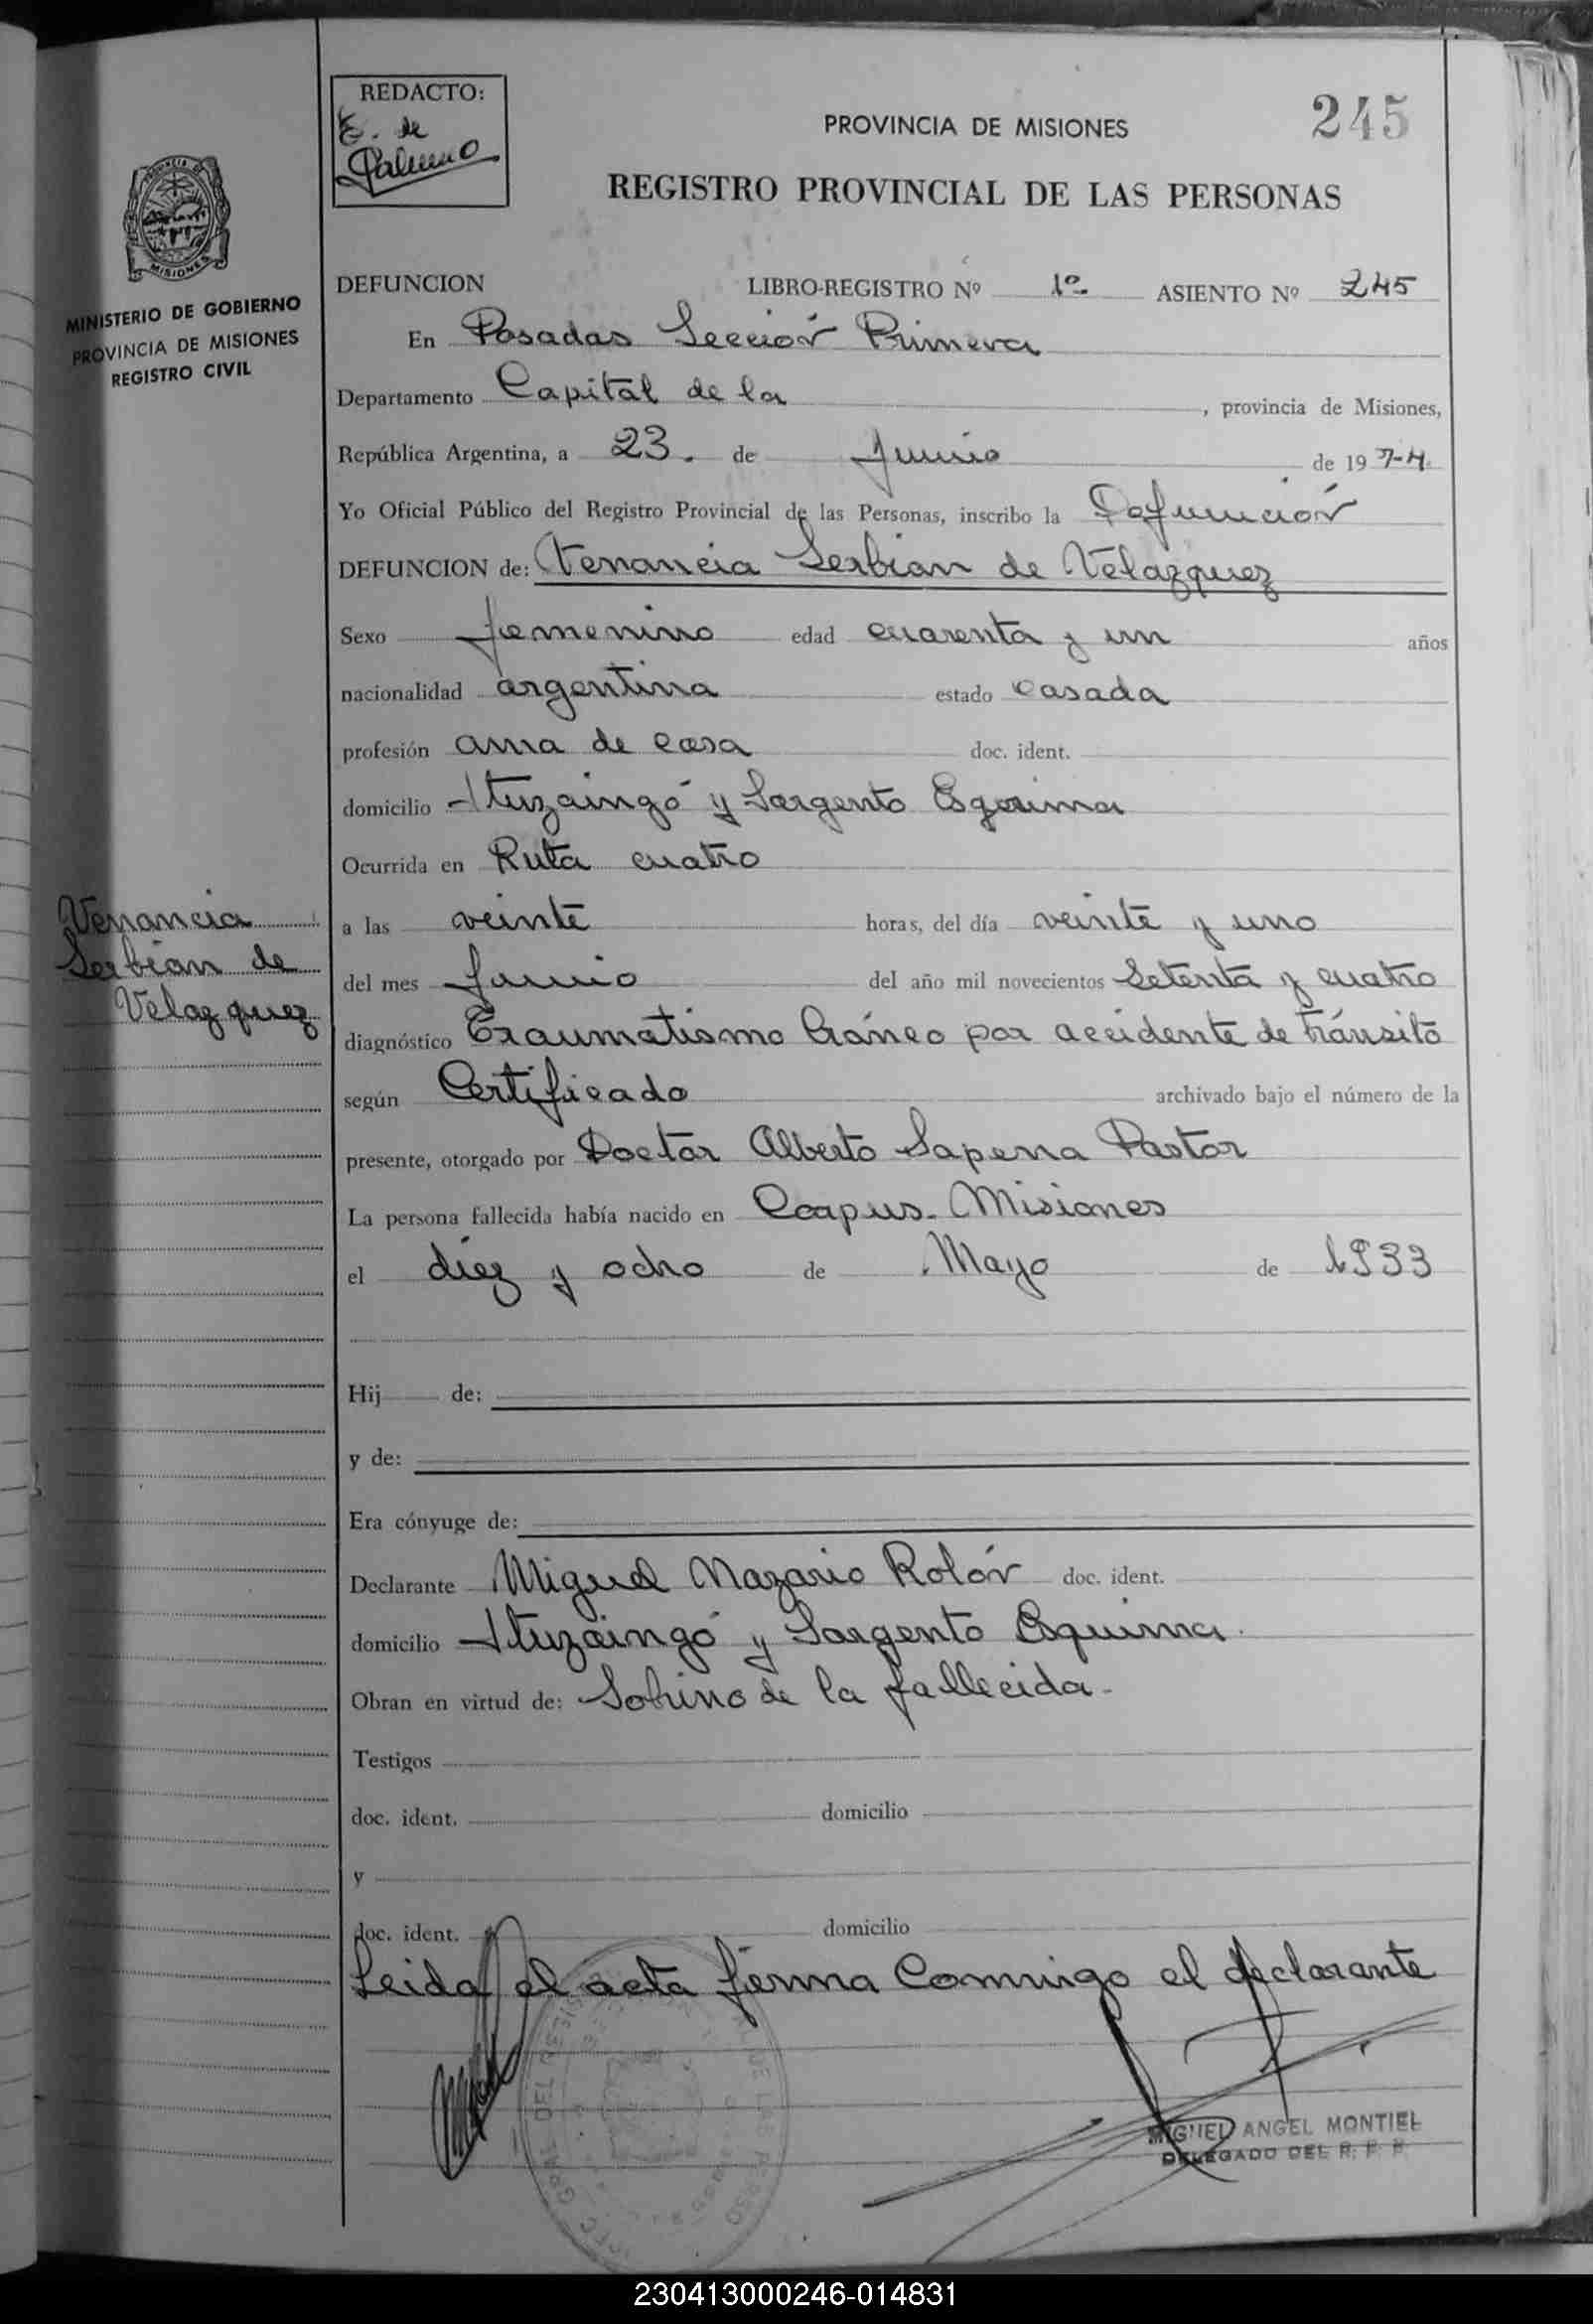 REDACTO:
E. de
Palumo
PROVINCIA DE MISIONES
245
REGISTRO PROVINCIAL DE LAS PERSONAS
PROVINCIA DE
MISIONES
MINISTERIO DE GOBIERNO
PROVINCIA DE MISIONES
REGISTRO CIVIL
DEFUNCION LIBRO-REGISTRO Nº 1º ASIENTO Nº 245
En Posadas Sección Primera
Departamento Capital de la , provincia de Misiones,
República Argentina, a 23. de Junio de 1974
Yo Oficial Público del Registro Provincial de las Personas, inscribo la Defunción
DEFUNCION de: Venancia Serbian de Velazquez
Sexo femenino edad cuarenta y un años
nacionalidad argentina estado casada
profesión ama de casa doc. ident.
domicilio Ituzaingó y Sargento Esquina
Ocurrida en Ruta cuatro
Venancia
Serbian de
Velazquez
a las veinte horas, del día veinte y uno
del mes Junio del año mil novecientos Setenta y cuatro
diagnóstico Traumatismo Cráneo por accidente de tránsito
según Certificado archivado bajo el número de la
presente, otorgado por Doctor Alberto Sapena Pastor
La persona fallecida había nacido en Corpus. Misiones
el diez y ocho de Mayo de 1933
Hij de:
y de:
Era cónyuge de:
Declarante Miguel Nazario Rolón doc. ident.
domicilio Ituzaingó y Sargento Esquina.
Obran en virtud de: Sobrino de la fallecida-
Testigos
doc. ident. domicilio
y
doc. ident. domicilio
Leida el acta firma Conmigo el declarante
MIGUEL ANGEL MONTIEL
DELEGADO DEL R. P. P.
230413000246-014831